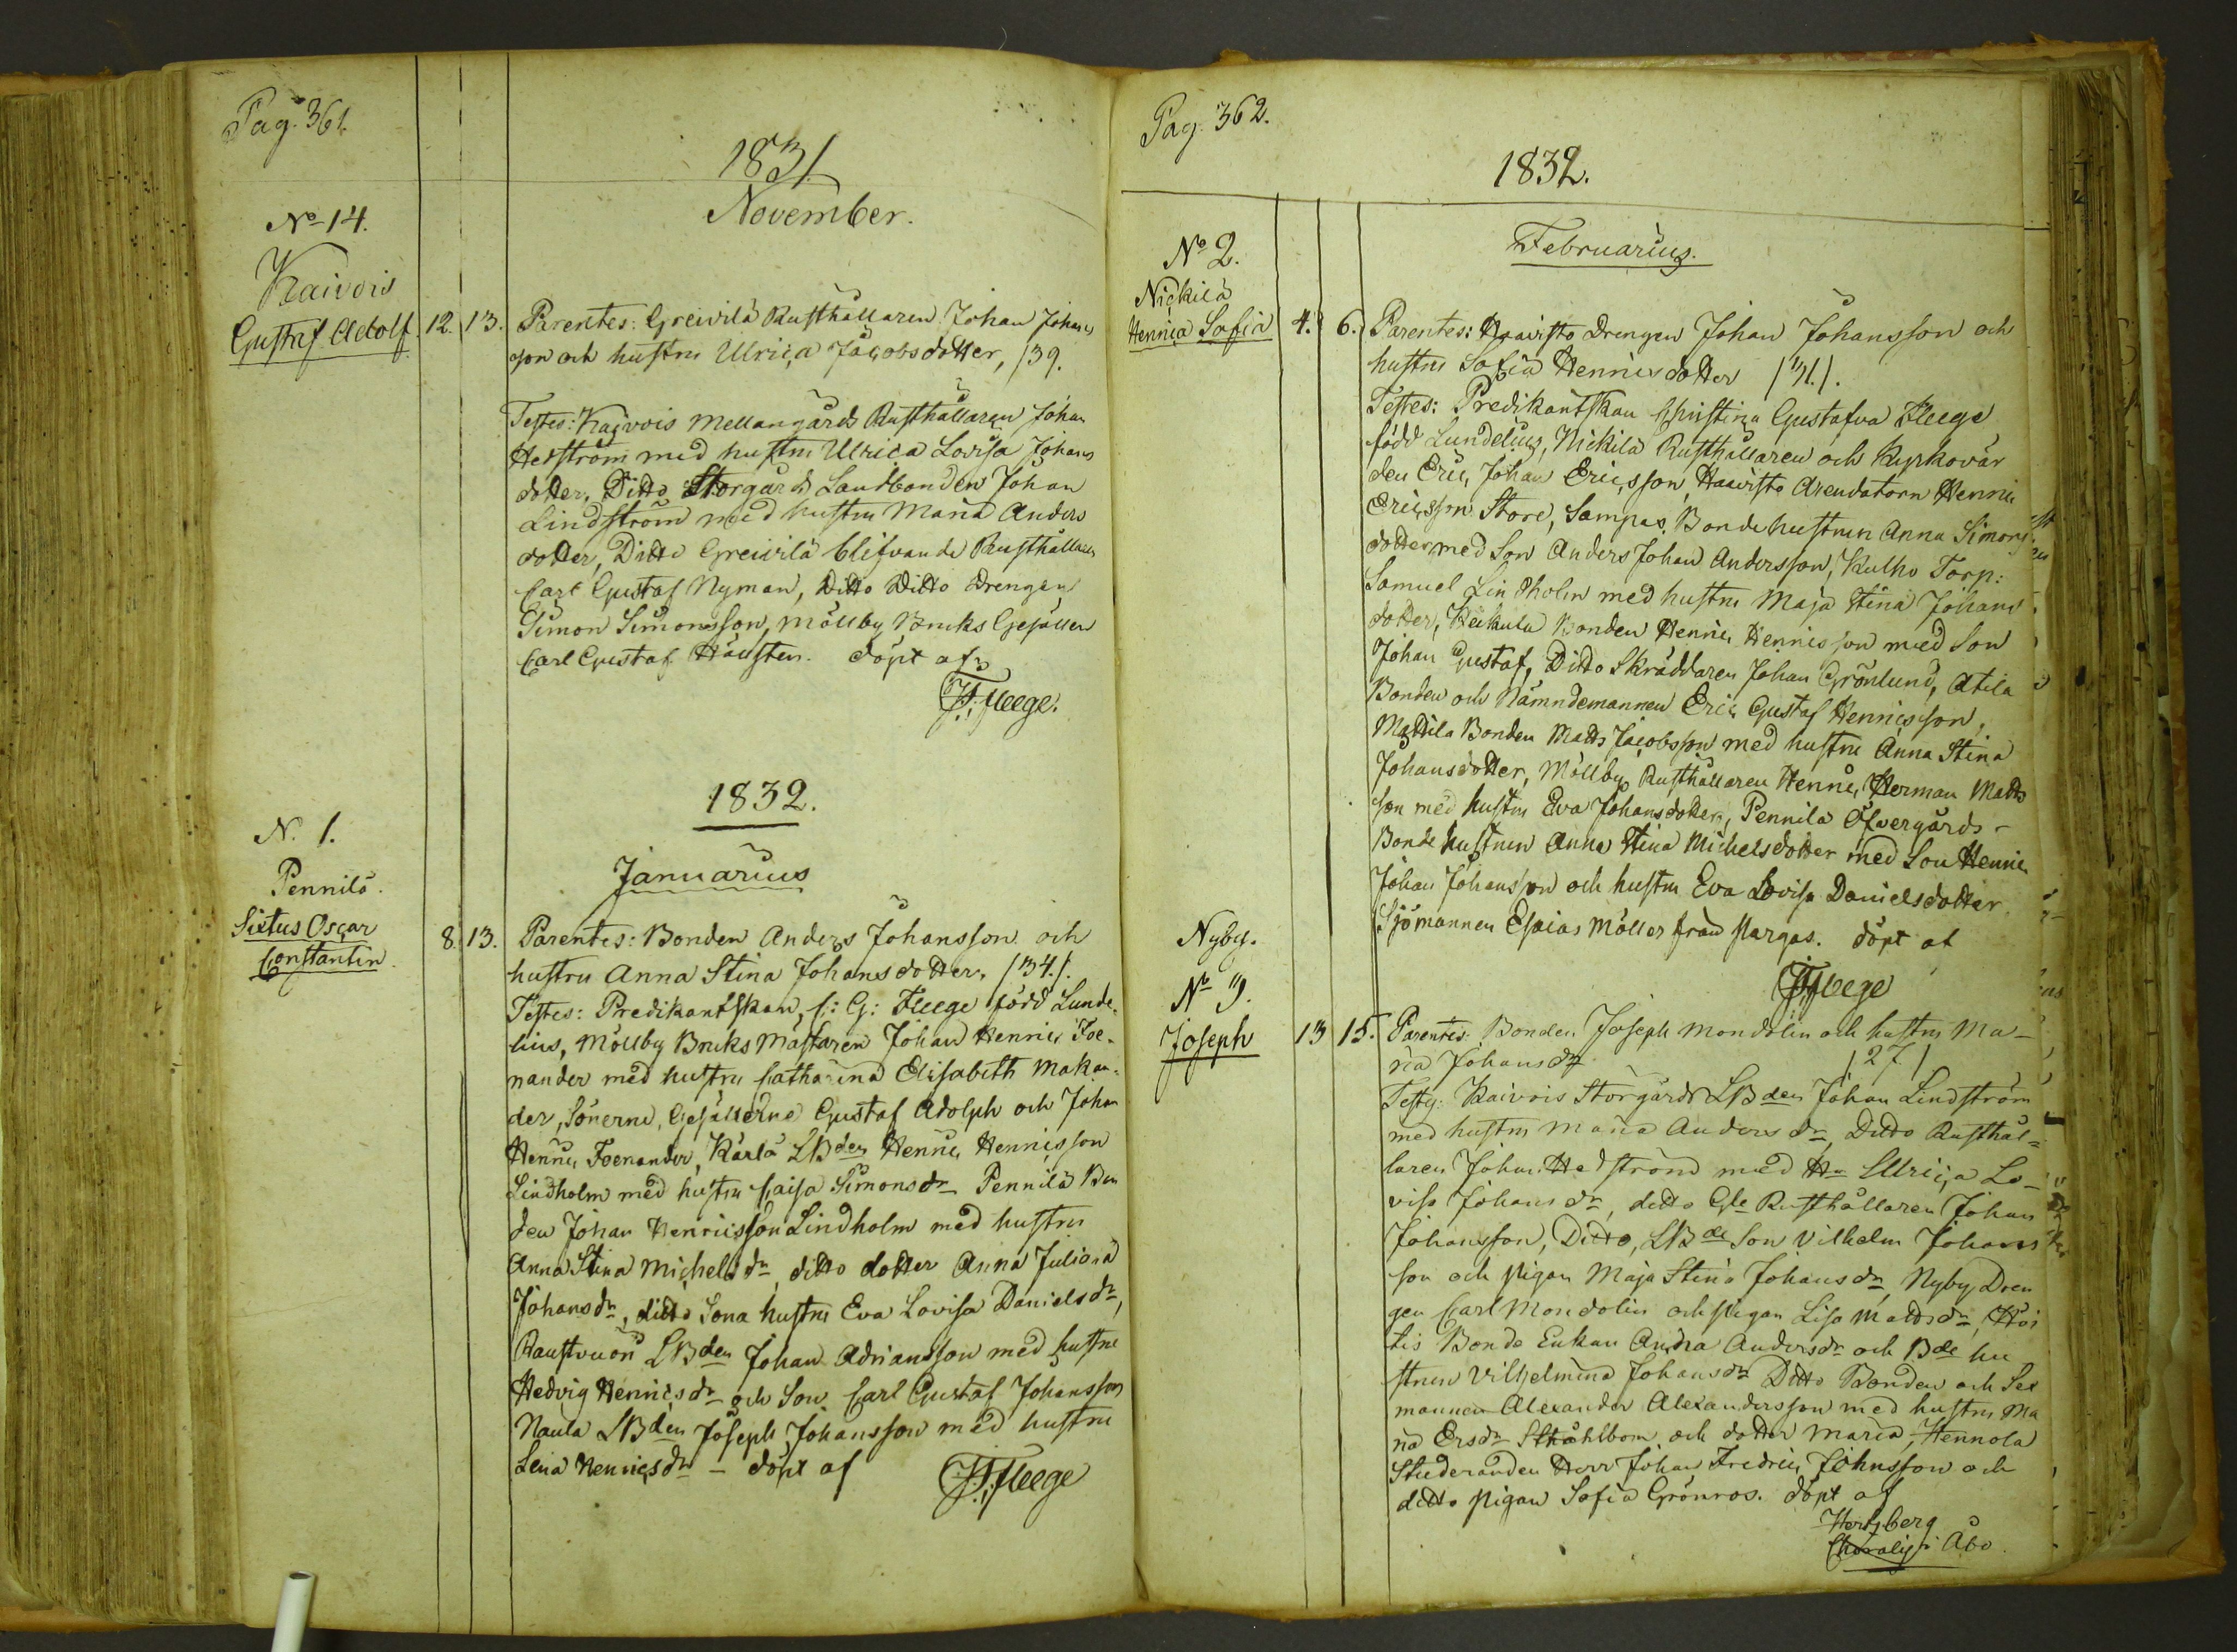 Pag. 361.
1831
November.
No 14.
Kaivois
Gustaf Adolf. 12. 13. Parentes: Greivilä Rusthållaren Johan Johans
son och hustru Ulrica Jacobsdotter, /39.
Testes: Kaivois Mellangårds Rusthållaren Johan
Hedström med hustru Ulrica Lovisa Johans
dotter, Ditto Storgårds Landbonden Johan
Lindström med hustru Maria Anders
dotter, Ditto Greivilä blifvande Rusthållaren
Carl Gustaf Nyman, Ditto Ditto Drengen
Simon Simonsson, Möllby Bruks Gesällen
Carl Gustaf Hausten. döpt af
Fleege.
1832.
Januarius
N. 1.
Pennilä.
Sixtus Oscar
Constantin. 8. 13. Parentes: Bonden Anders Johansson och
hustru Anna Stina Johansdotter. /34./.
Testes: Predikantskan, C: G: Fleege född Lunde-
lius, Möllby Bruks Mästaren Johan Henric Foe-
nander med hustru Catharina Elisabeth Makan-
der, Sönerne, Gesällerne Gustaf Adolph och Johan
Henric Foenander, Karla LBden Henric Henricsson
Lindholm med hustru Caisa Simonsdr Pennilä Bon
den Johan Henricsson Lindholm med hustru
Anna Stina Michelsdr, ditto dotter Anna Juliana
Johansdr, ditto Sona hustru Eva Lovisa Danielsdr,
Raustvuori LBden Johan Adriansson med hustru
Hedvig Henricsdr och Son Carl Gustaf Johansson
Naula LBden Joseph Johansson med hustru
Lena Henricsdr – döpt af
Fleege
Pag. 362.
1832.
Februarius.
No 2.
Nickilä
Henrica Sofia 4. 6. Parentes: Haavisto Drengen Johan Johansson och
hustru Sofia Henricsdotter /31./.
Testes: Predikantskan Christina Gustafva Fleege
född Lundelius, Nickilä Rusthållaren och Kyrkovär
den Eric Johan Ericsson, Haavisto Arendatorn Henric
Ericsson Store, Sampas Bondehustrun Anna Simons
dotter med Son Anders Johan Andersson, Kulho Torp:
Samuel Lindholm med hustru Maja Stina Johans
dotter, Keikula Bonden Henric Henricsson med Son
Johan Gustaf, Ditto Skräddaren Johan Grönlund, Atila
Bonden och Nämndemannen Eric Gustaf Henricsson,
Mattila Bonden Matts Jacobsson med hustru Anna Stina
Johansdotter, Möllby Rusthållaren Henric Herman Matts
son med hustru Eva Johansdotter, Pennilä Öfvergårds-
Bonde hustrun Anna Stina Michelsdotter med Son Henric
Johan Johansson och hustru Eva Lovisa Danielsdotter
Sjömannen Esaias Möller från Pargas. döpt af
Fleege
Nyby.
No 3.
Joseph 13 15. Parentes: Bonden Joseph Mondolin och hustru Ma-
ria Johansdr /27/
Testes: Kaivois Storgårds LBden Johan Lindström
med hustru Maria Andersdr, Ditto Rusthål=
laren Johan Hedström med Hu Ulrica Lo-
visa Johansdr, ditto Gle Rusthållaren Johan
Johansson, Ditto, LBde Son Vilhelm Johans
son och Pigan Maja Stina Johansdr, Nyby Dren
gen Carl Mondolin och pigan Lisa Mattsdr,
tis Bonde Enkan Andersdr och Bde hu
strun Vilhelmina Johansdr Ditto Bonden och Sex
mannen Alexander Alexandersson med hustru Ma
ria Ersdr Ståhlbom och dotter Maria, Hennola
Studeranden Herr Johan Fredric Johnsson och
ditto pigan Sofia Grönros. döpt af
Hertzberg
i Åbo.